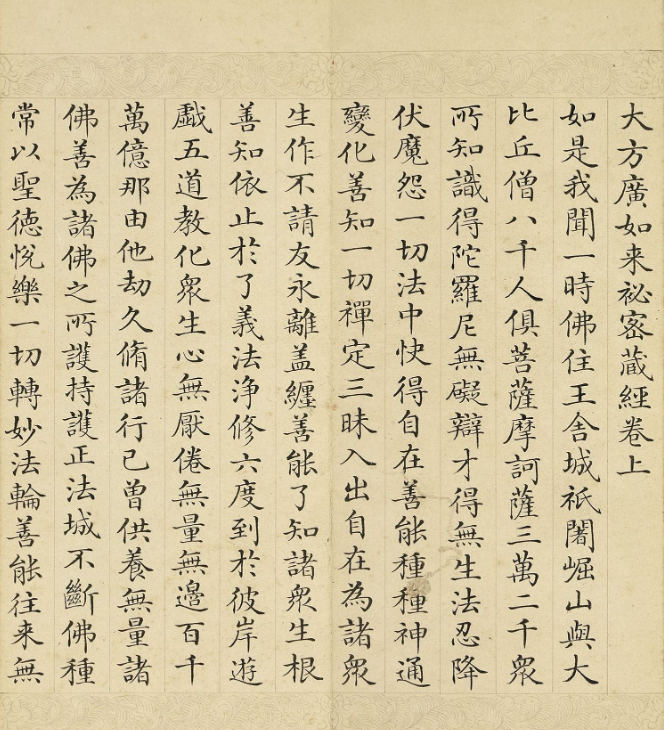 大方廣如来祕密蔵經卷上
如是我聞一時佛住王舍城祇闍崛山與大
比丘僧八千人俱菩薩摩訶薩三萬二千衆
所知識得陀羅尼無礙辯才得無生法忍降
伏魔怨一切法中快得自在善能種種神通
變化善知一切禪定三昧入出自在為諸衆
生作不請友永離盖纏善能了知諸衆生根
善知依止於了義法淨修六度到於彼岸遊
戯五道教化衆生心無厭倦無量無邊百千
萬億那由他劫久脩諸行已曾供養無量諸
佛善為諸佛之所護持護正法城不斷佛種
常以聖德悅樂一切轉妙法輪善能往来無